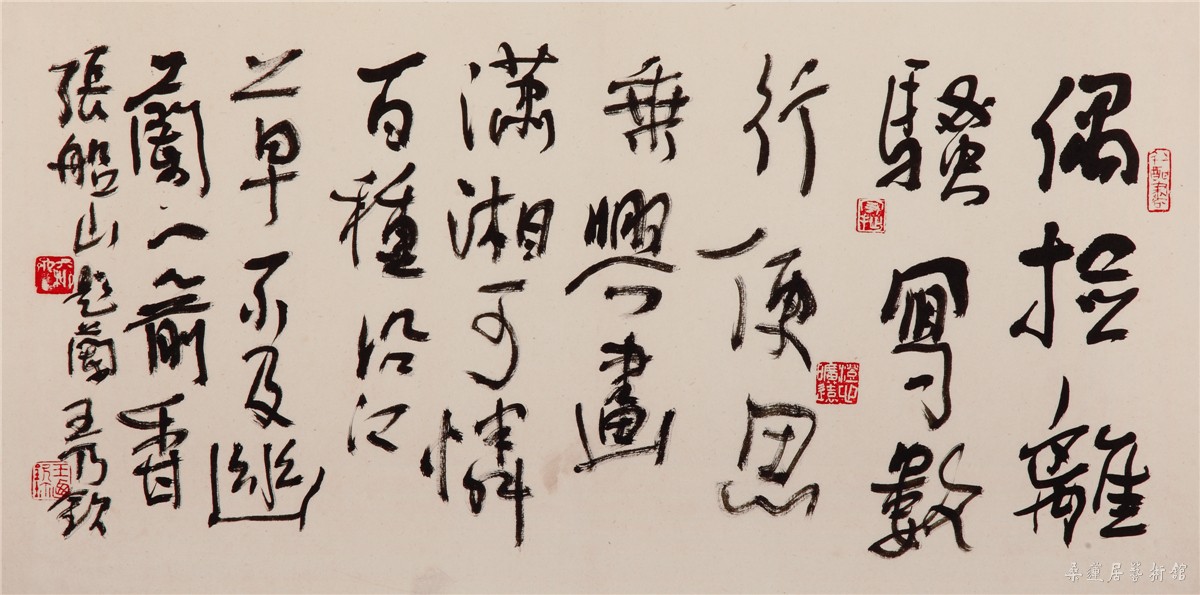 偶捡離
騷寫數
行便思
乘興畫
瀟湘可憐
百種沿江
草不及幽
蘭一箭香
張船山題蘭 王乃欽
桑蓮居藝術館